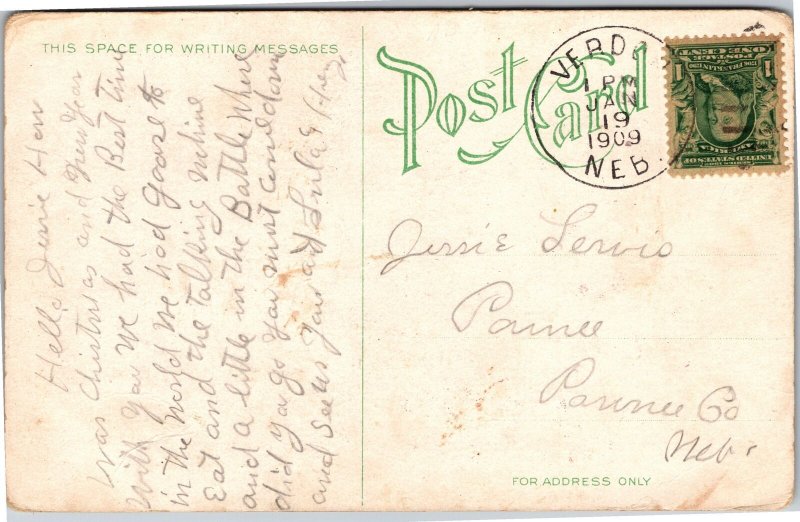 THIS SPACE FOR WRITING MESSAGES
Post Card
VERDO
1 PM
JAN
19
1909
NEB.
ONE CENT
POSTAGE
1 1
UNITED STATES OF
AMERICA
Jessie Servis
Pawnee
Pawnee Co
Nebr
FOR ADDRESS ONLY
Hello Jessie How
was Christmas and New Year
with you we had the Best time
in the world we had goose to
Eat and the talking Mchine
and a little in the Battle Where
did ya go You must come down
and see us Your aut Lula & Harry